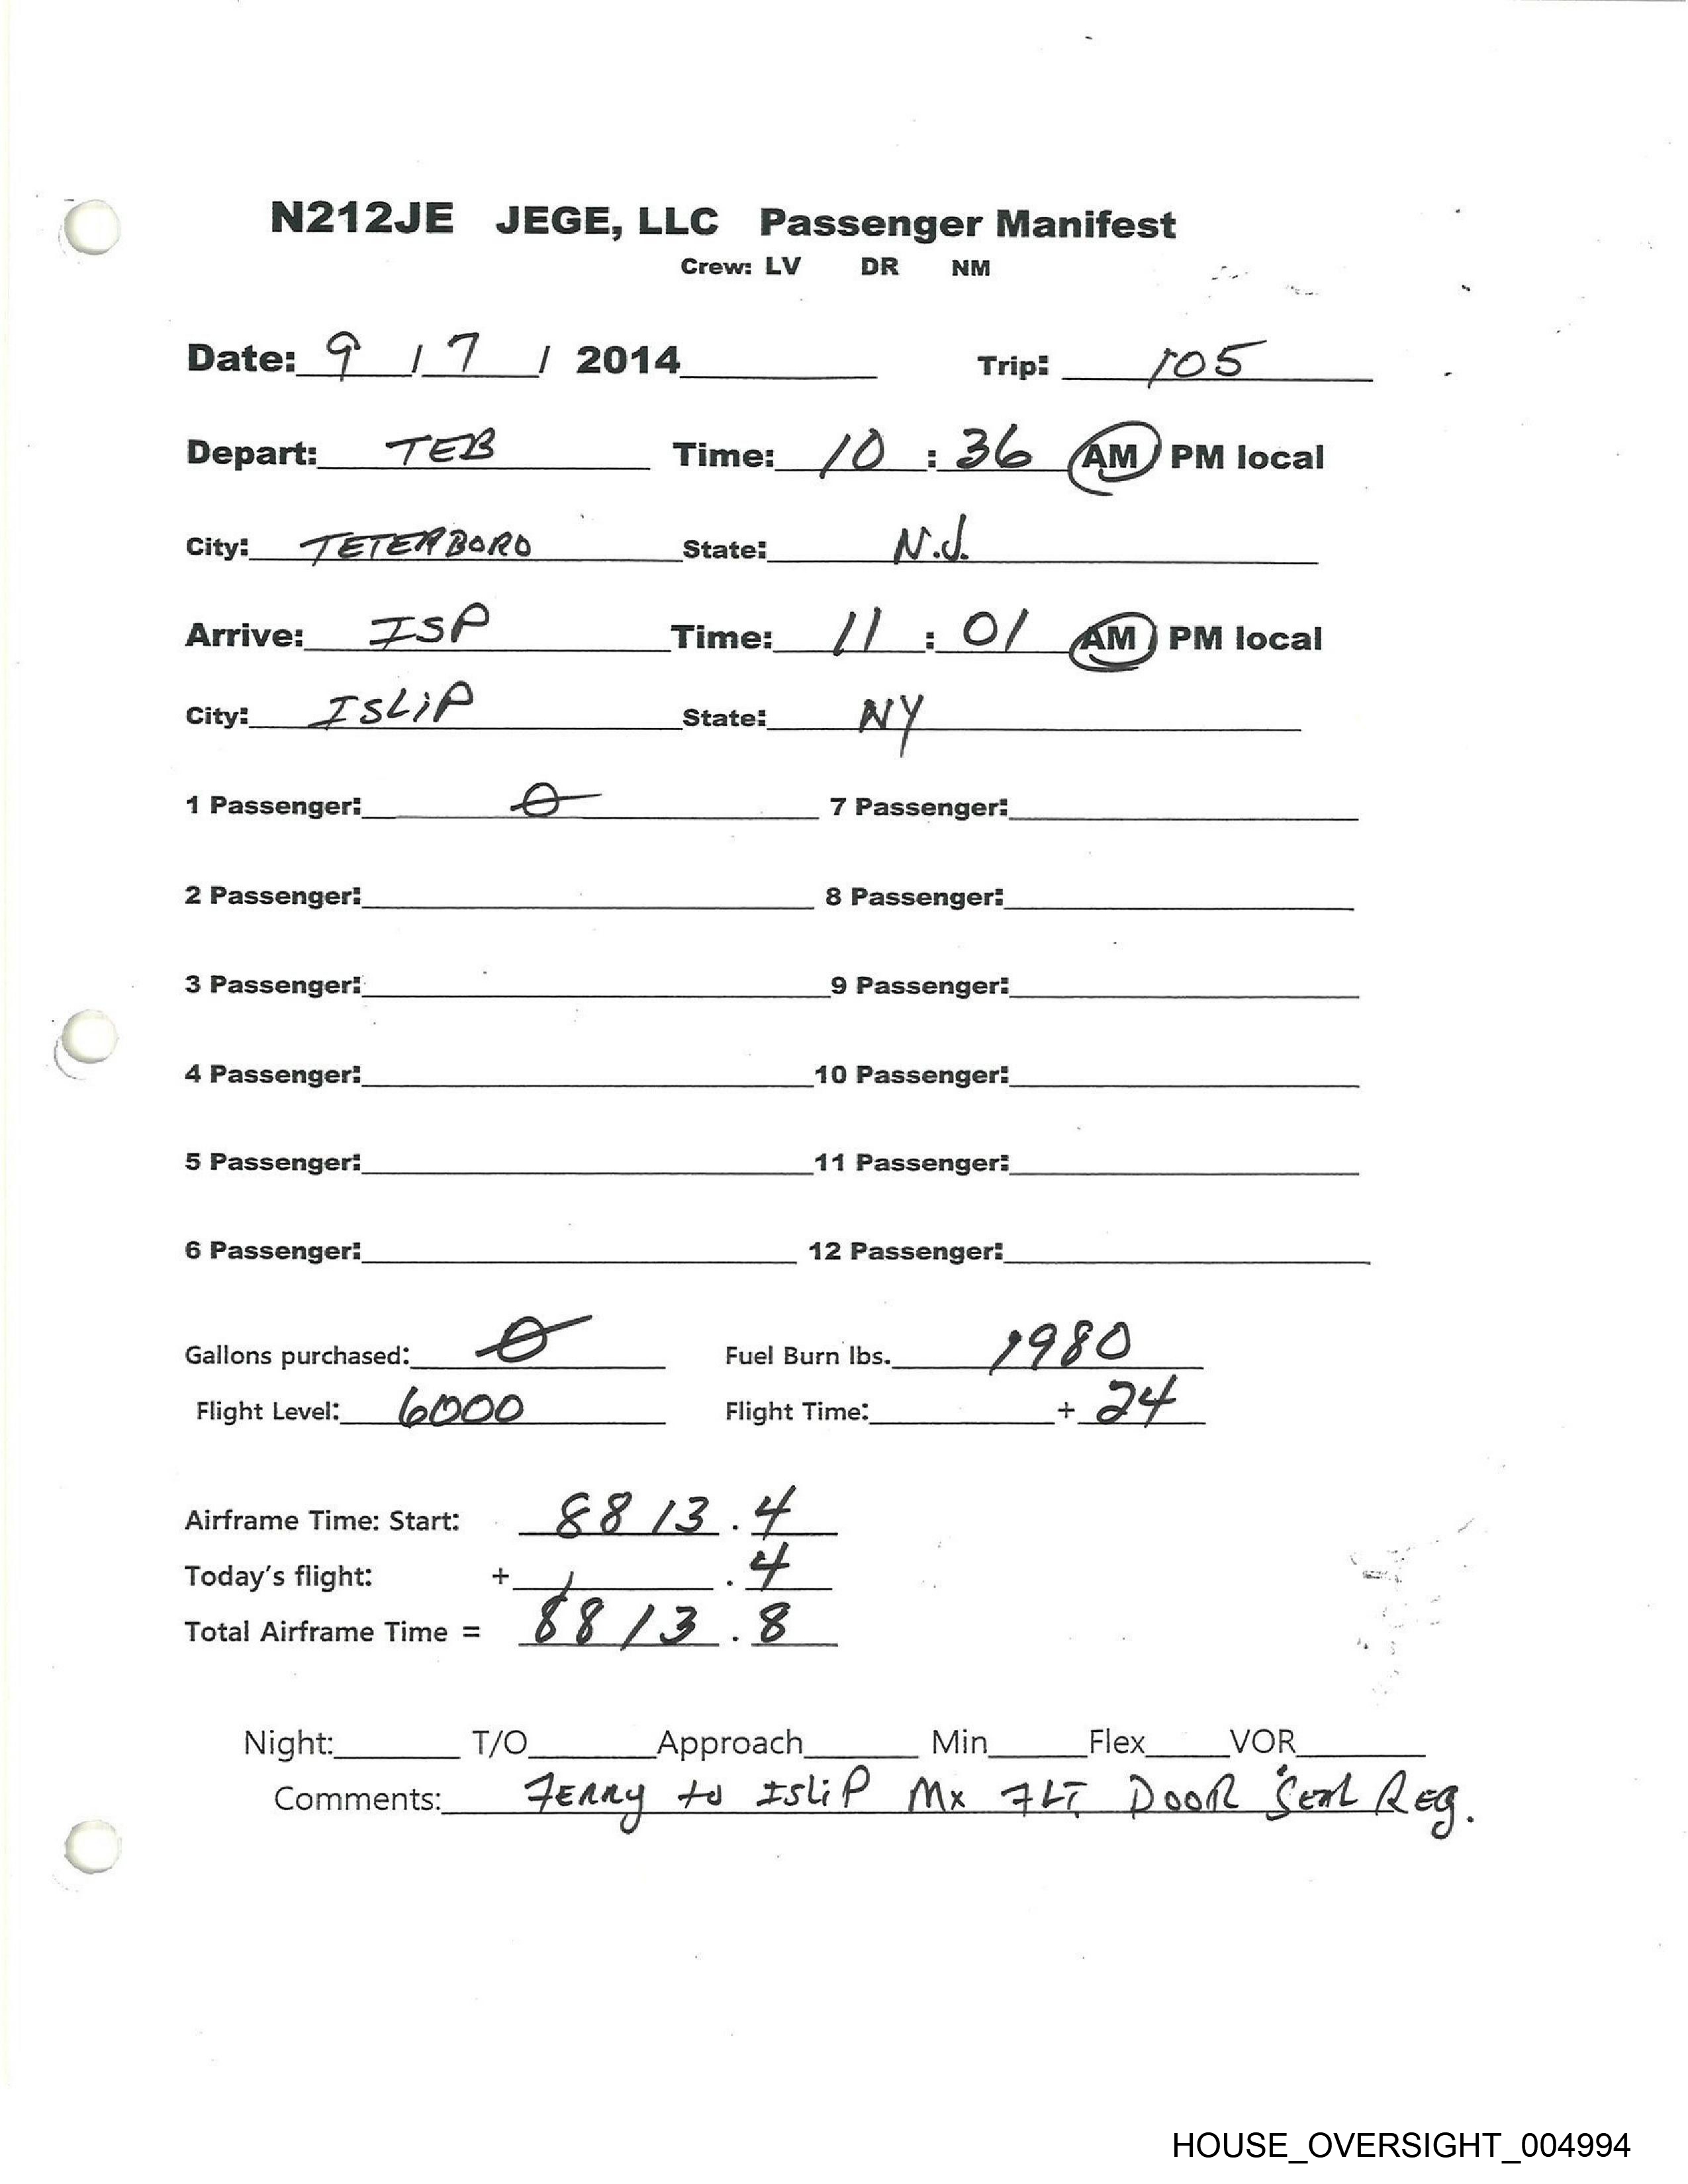 N212JE JEGE, LLC Passenger Manifest
Crew: LV DR NM
Date: 9 / 7 / 2014 Trip: 105
Depart: TEB Time: 10 : 36 AM PM local
City: TETERBORO State: N.J.
Arrive: ISP Time: 11 : 01 AM PM local
City: ISLiP State: NY
1 Passenger: 0 7 Passenger:
2 Passenger: 8 Passenger:
3 Passenger: 9 Passenger:
4 Passenger: 10 Passenger:
5 Passenger: 11 Passenger:
6 Passenger: 12 Passenger:
Gallons purchased: 0 Fuel Burn lbs. 1980
Flight Level: 6000 Flight Time: + 24
Airframe Time: Start: 8813.4
Today's flight: + .4
Total Airframe Time = 8813.8
Night: T/O Approach Min Flex VOR
Comments: FERRY to ISLiP Mx FLT DOOR SEAL REG.
HOUSE_OVERSIGHT_004994